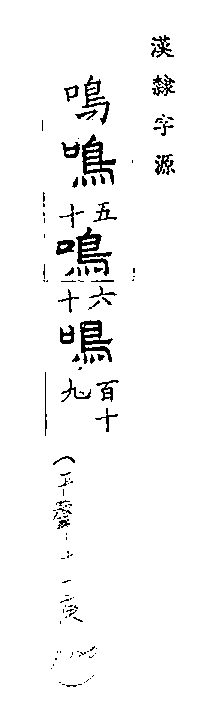 漢隸字源
鳴鳴五十鳴六十鳴百十九
(平聲十二庚